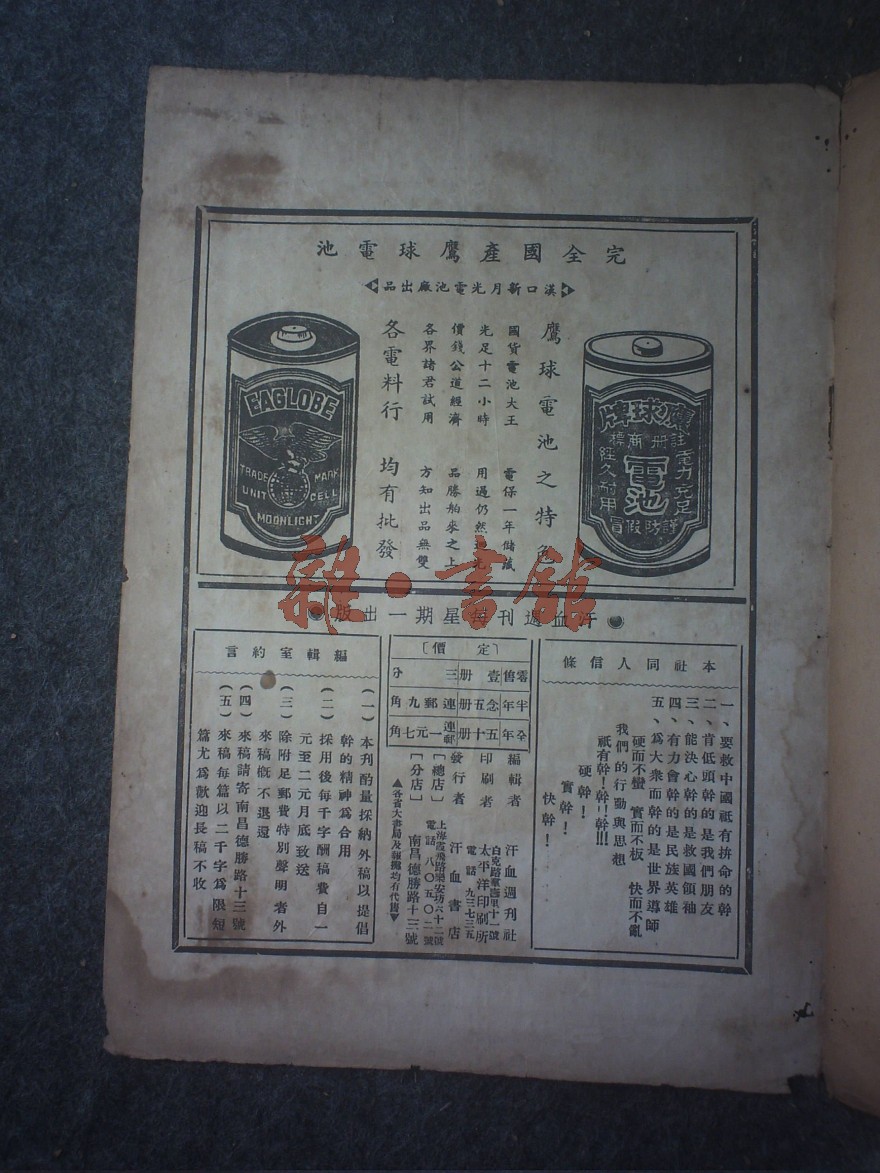 完全國產鷹球電池
漢口新月光電池廠出品
鷹球牌
註冊商標
電力充足
電池
經久耐用
謹防假冒
鷹球電池之特色
國貨電池大王 電保一年儲藏
光足十二小時 用過仍然
價錢公道經濟 品勝舶來之上
各界諸君試用 方知出品無雙
各電料行 均有批發
EAGLOBE
TRADE MARK
UNIT CELL
MOONLIGHT
雜·書館
汗血週刊每星期一出版
本社同人信條
一、要救中國祇有拚命的幹
二、肯低頭幹的是我們朋友
三、能決心幹的是救國領袖
四、有力會幹的是民族英雄
五、為大衆而幹的是世界導師
硬而不蠻 實而不板 快而不亂
我們的行動與思想
祇有幹！幹！！幹！！！
硬幹！
實幹！
快幹！
〔定價〕
零售 壹冊 三分
半年 念五冊 連郵九角
全年 五十冊 連郵一元七角
編輯者 汗血週刊社
白克路 十一號
印刷者 太平洋印刷所
電話 九三七三五
發行者 汗血書店
〔總店〕 上海霞飛路樂安坊六十二號
電話 八〇五〇二號
〔分店〕 南昌德勝路十三號
▲各省大書局及報攤均有代售▼
編輯室約言
（一）本刊酌量採納外稿以提倡
幹的精神為合用
（二）採用後每千字酬稿費自一
元至二元月底致送
（三）除附足郵費特別聲明者外
來稿概不退還
（四）來稿請寄南昌德勝路十三號
（五）來稿每篇以二千字為限短
篇尤為歡迎長稿不收